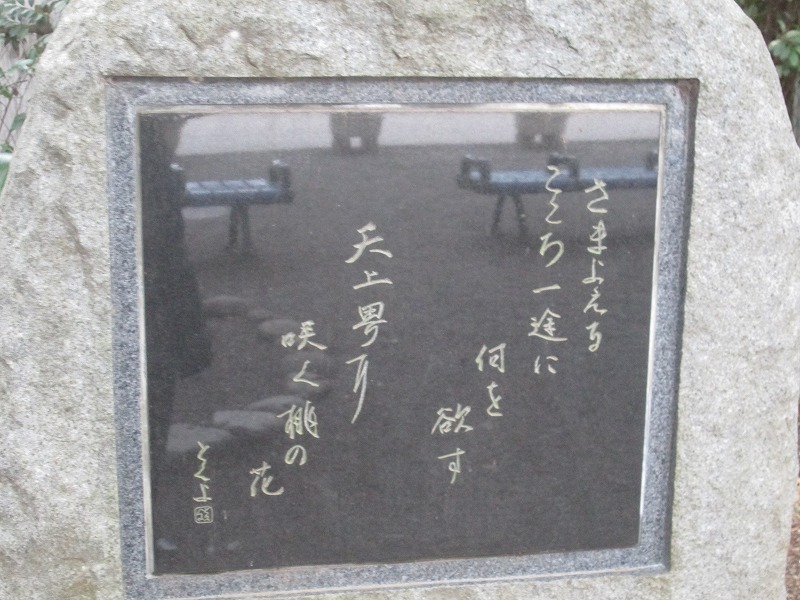 さまよえる
こころ一途に
何を
欲す
天上界に
咲く桃の
花
とくよ